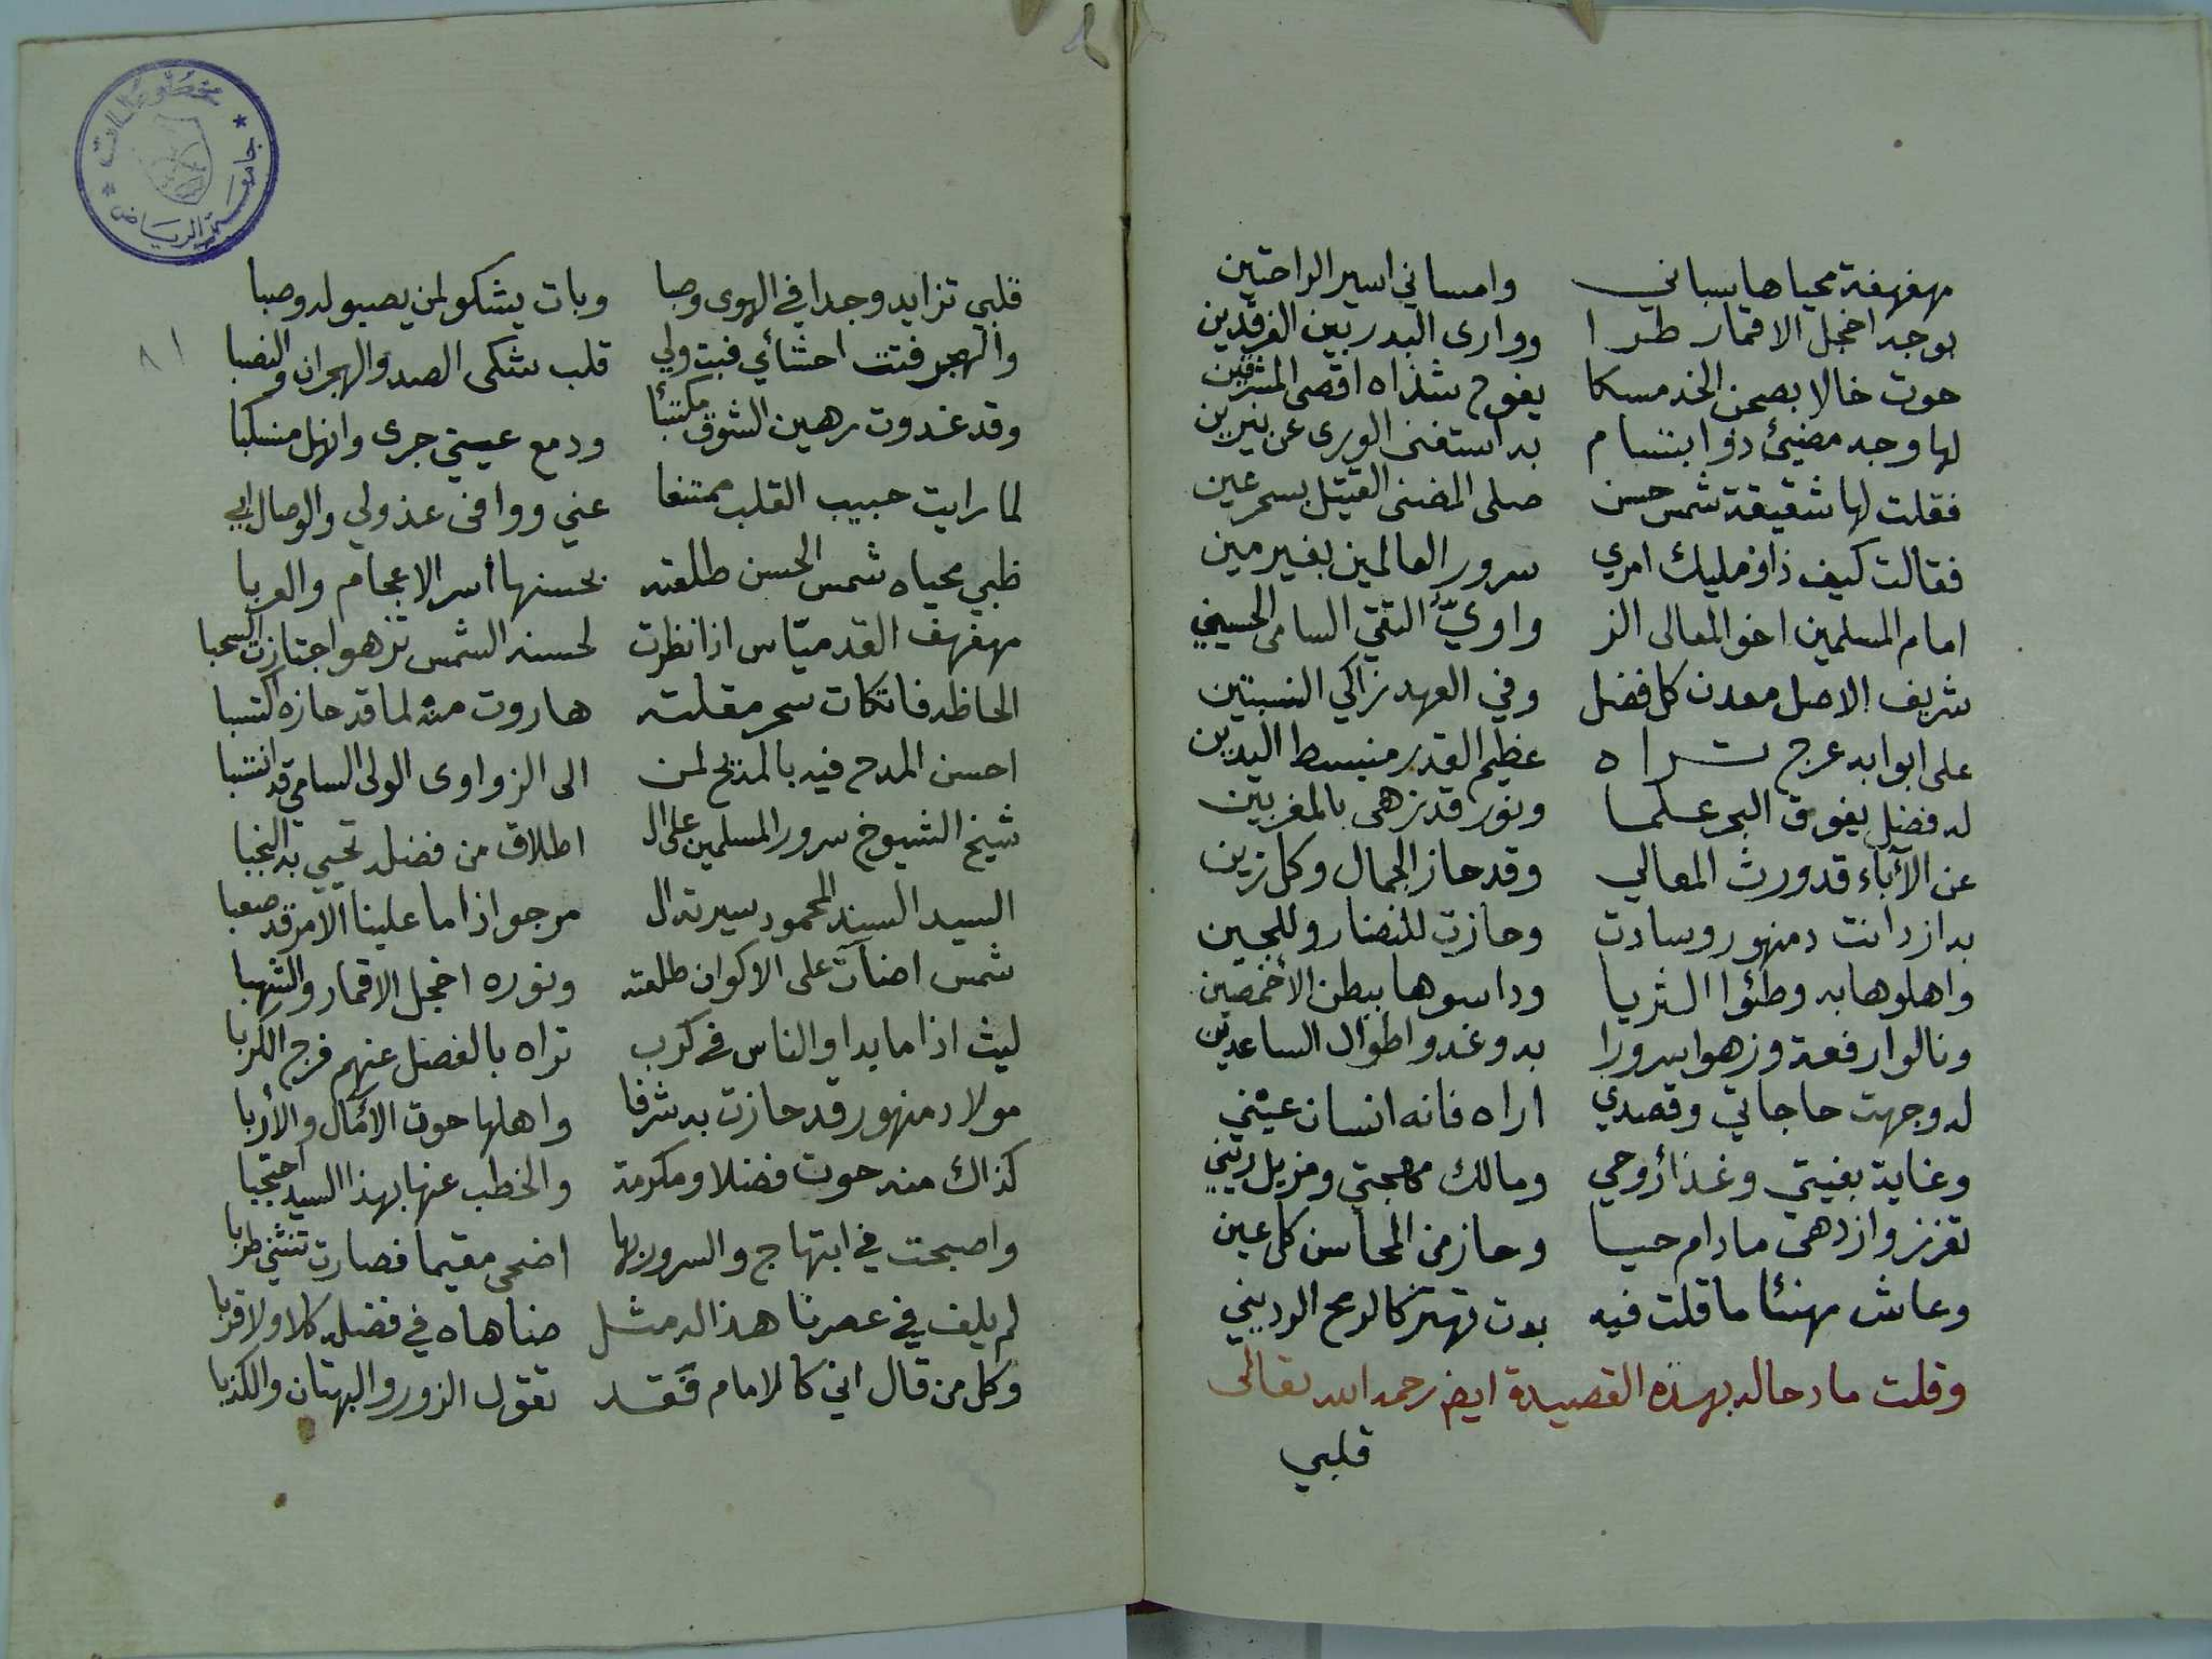 مهفهفة محياها سباني وامساني اسير الراحتين
بوجه اخجل الاقمار طرا ووارى البدر بين الفرقدين
حوت خالا بصحن الخد مسكا يفوح شذاه اقصى المشرقين
لها وجه مضيئ ذو ابتسام به استغنى الورى عن نيرين
فقلت لها شقيقة شمس حسن صلى المضنى القتيل بسحر عين
فقالت كيف ذا ومليك امري سرور العالمين بغير مين
امام المسلمين اخو المعالى الز واويّ التقي السامى الحسيني
شريف الاصل معدن كل فضل وفي العهد زاكي النسبتين
على ابوابه عرج تراه عظيم القدر منبسط اليدين
له فضل يفوق البحر علما ونور قد زهى بالمغربين
عن الآباء قد ورث المعالي وقد حاز الجمال وكل زين
به ازدانت دمنهور وسادت وحازت للنضار وللجين
واهلوها به وطئوا الثريا وداسوها ببطن الأخمصين
ونالوا رفعة وزهوا سرورا به وغدوا طوال الساعدين
له وجهت حاجاتي وقصدي اراه فانه انسان عيني
وغاية بغيتي وغذا روحي ومالك مهجتي ومزيل ريني
تعزز وازدهى مادام حيا وحاز من المحاسن كل عين
وعاش مهنئا ما قلت فيه بدت تهتز كالرمح الرديني
وقلت مادحا له بهذه القصيدة ايض رحمه الله تعالى
قلبي
مخطوطات
جامعة الرياض
٨١
قلبي تزايد وجدا في الهوى وصبا وبات يشكو لمن يصبو له وصبا
والهجر فتت احشائي فبت ولي قلب شكى الصد والهجران والنصبا
وقد غدوت رهين الشوق مكتئبا ودمع عيني جرى وانهل منسكبا
لما رايت حبيب القلب ممتنعا عني ووافى عذولي والوصال ابى
ظبي محياه شمس الحسن طلعته بحسنها أسر الاعجام والعربا
مهفهف القد ميّاس اذا نظرت لحسنه الشمس تزهو اجتازت السحبا
الحاظه فاتكات سحر مقلته هاروت منه لما قد حازه اكتسبا
احسن المدح فيه بالمديح لمن الى الزواوى الولى السامي قد انتسبا
شيخ الشيوخ سرور المسلمين على ال اطلاق من فضله تحيي به النجبا
السيد السند المحمود سيرته ال مرجو اذا ما علينا الامر قد صعبا
شمس اضآت على الاكوان طلعته ونوره اخجل الاقمار والشهبا
ليث اذا ما بدا والناس في كرب تراه بالفضل عنهم فرج الكربا
مولا دمنهور قد حازت به شرفا واهلها حوت الآمال والأربا
كذاك منه حوت فضلا ومكرمة والخطب عنها بهذا السيد احتجبا
واصبحت في ابتهاج والسرور بها اضحى مقيما فصارت تنثني طربا
لم يلف في عصرنا هذا له مثل ضاهاه في فضله كلا ولا قربا
وكل من قال اني كالامام فقد تقول الزور والبهتان والكذبا